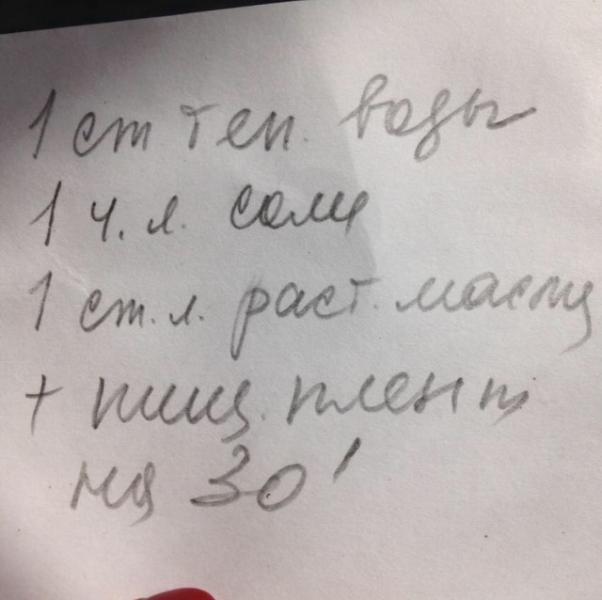 1 ст теп. воды
1 ч. л. соли
1 ст. л. раст. масла
+ пищ. пленка
на 30'